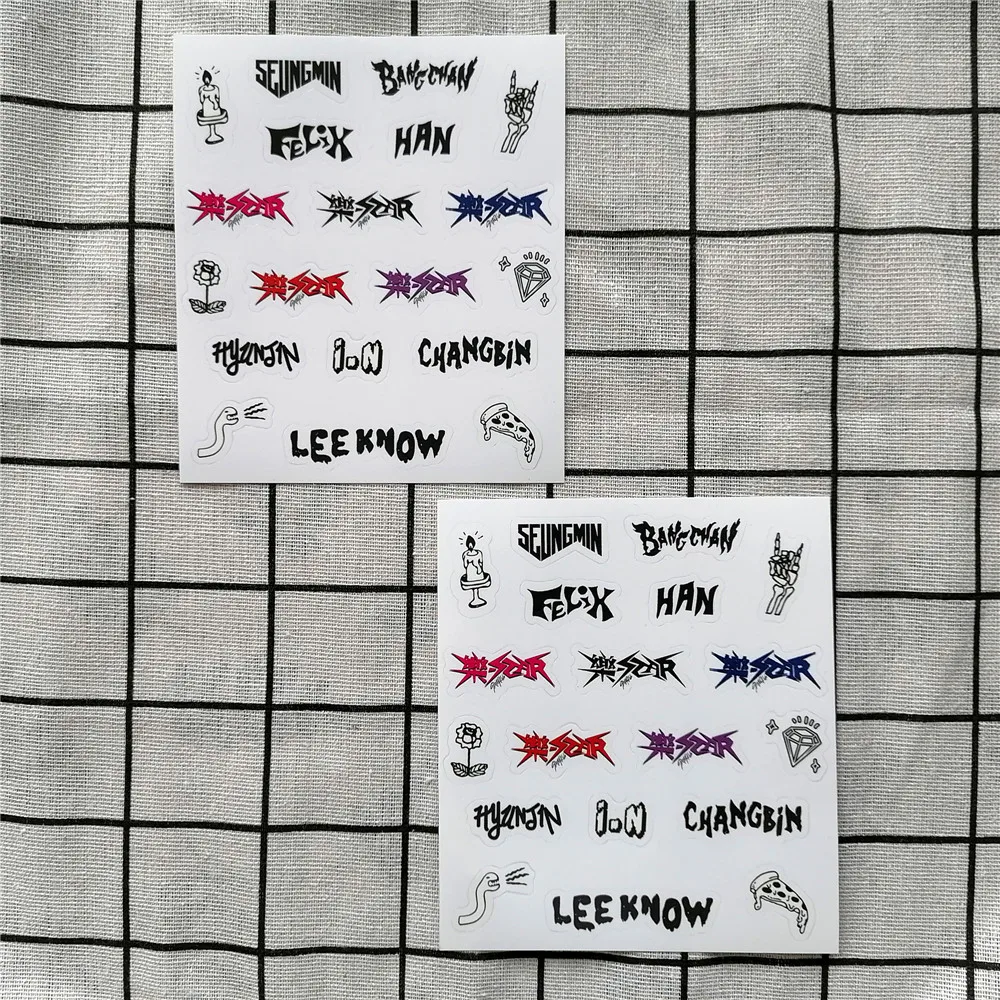 SEUNGMIN BANGCHAN
FELIX HAN
樂-STAR 樂-STAR 樂-STAR
樂-STAR 樂-STAR
HYUNJIN I.N CHANGBIN
LEE KNOW
SEUNGMIN BANGCHAN
FELIX HAN
樂-STAR 樂-STAR 樂-STAR
樂-STAR 樂-STAR
HYUNJIN I.N CHANGBIN
LEE KNOW